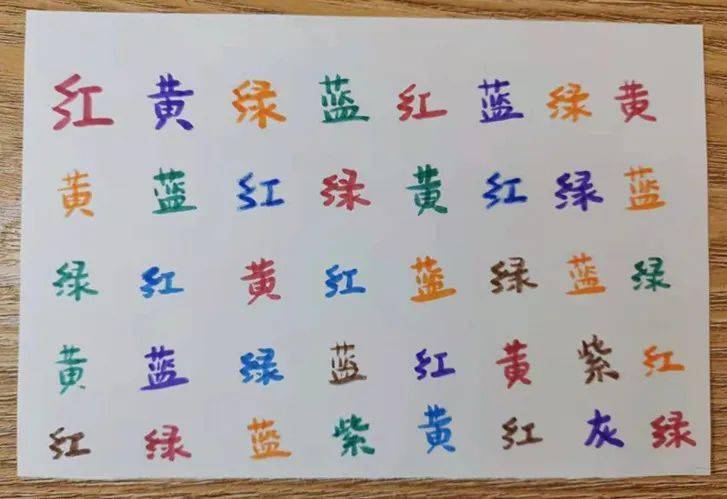 红 黄 绿 蓝 红 蓝 绿 黄
黄 蓝 红 绿 黄 红 绿 蓝
绿 红 黄 红 蓝 绿 蓝 绿
黄 蓝 绿 蓝 红 黄 紫 红
红 绿 蓝 紫 黄 红 灰 绿